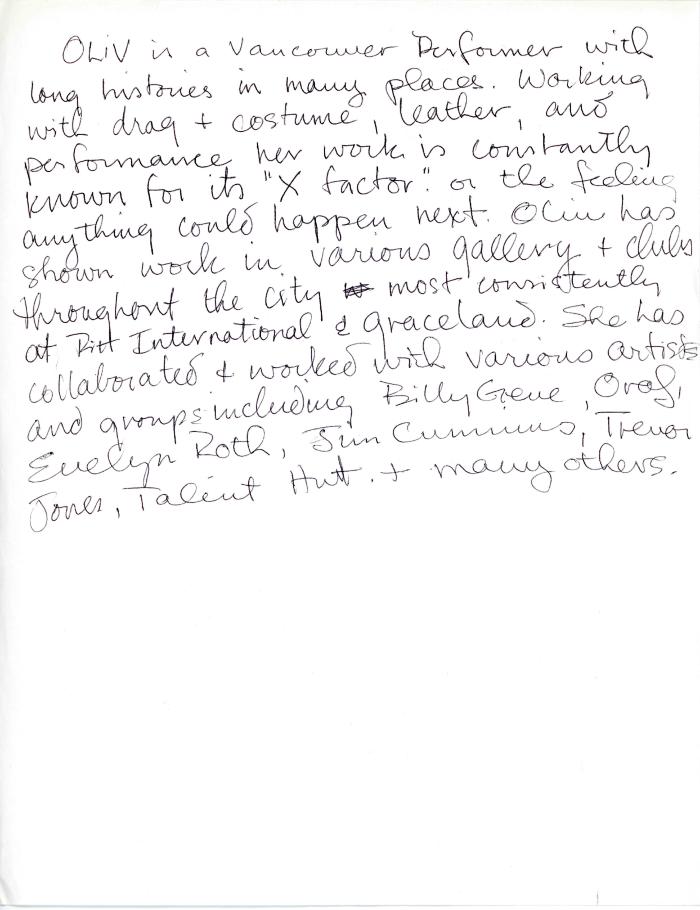 OLiV is a Vancouver Performer with
long histories in many places. Working
with drag + costume, leather, and
performance her work is constantly
known for its "X factor". or the feeling
anything could happen next. Oliv has
shown work in various gallery + clubs
throughout the city most consistently
at Pitt International & graceland. She has
collaborated & worked with various artists
and groups including Billy Gene, Oraf,
Evelyn Roth, Jim Cummins, Trevor
Jones, Talent Hut. + many others.